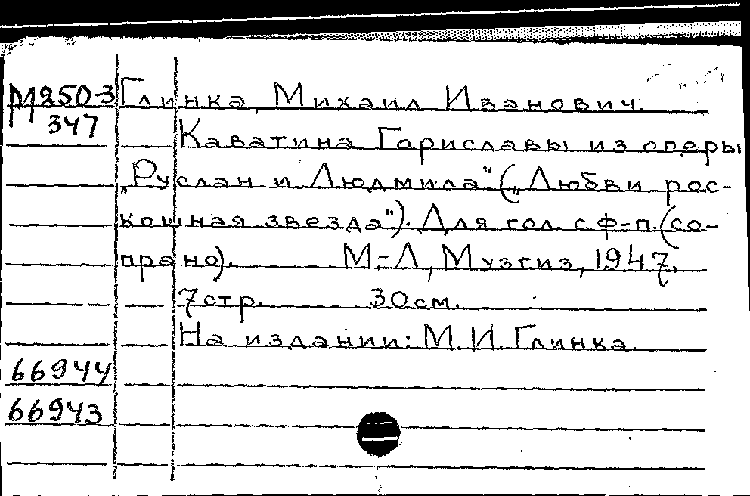 М250-3 Глинка, Михаил Иванович.
347 Каватина Гориславы из оперы
„Руслан и Людмила" („Любви рос-
кошная звезда"). Для гол. с ф-п. (со-
прано). М.-Л., Музгиз, 1947.
7 стр. 30 см.
На издании: М. И. Глинка.
66944
66943